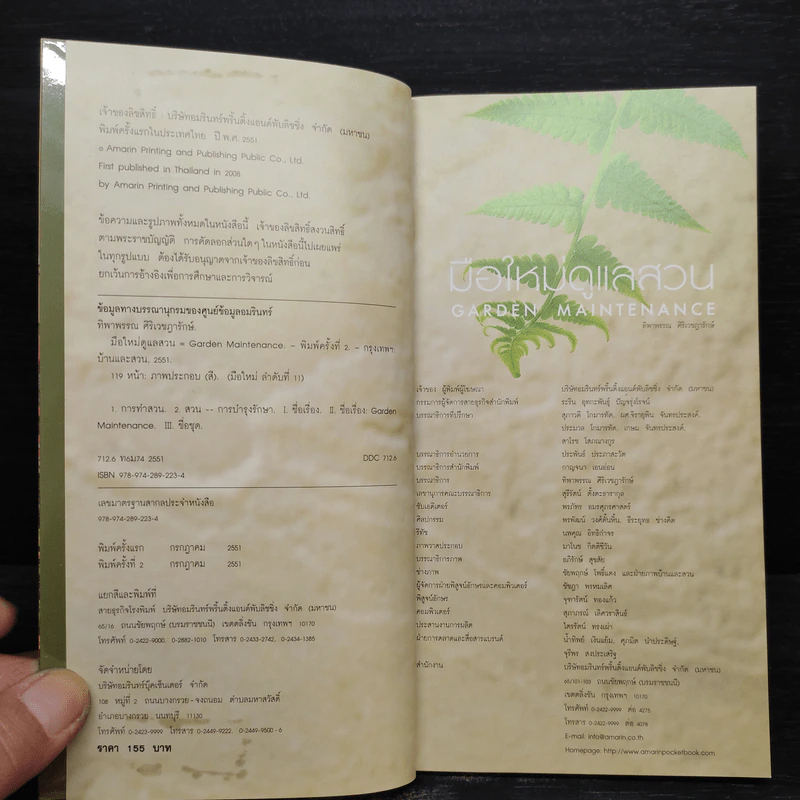 เจ้าของลิขสิทธิ์ : บริษัทอมรินทร์พริ้นติ้งแอนด์พับลิชชิ่ง จำกัด (มหาชน)
พิมพ์ครั้งแรกในประเทศไทย ปี พ.ศ. 2551
© Amarin Printing and Publishing Public Co., Ltd.
First published in Thailand in 2008
by Amarin Printing and Publishing Public Co., Ltd.
ข้อความและรูปภาพทั้งหมดในหนังสือนี้ เจ้าของลิขสิทธิ์สงวนสิทธิ์
ตามพระราชบัญญัติ การคัดลอกส่วนใดๆ ในหนังสือนี้ไปเผยแพร่
ในทุกรูปแบบ ต้องได้รับอนุญาตจากเจ้าของลิขสิทธิ์ก่อน
ยกเว้นการอ้างอิงเพื่อการศึกษาและการวิจารณ์
ข้อมูลทางบรรณานุกรมของศูนย์ข้อมูลอมรินทร์
ทิพาพรรณ ศิริเวชฎารักษ์.
มือใหม่ดูแลสวน = Garden Maintenance. – พิมพ์ครั้งที่ 2. – กรุงเทพฯ
บ้านและสวน, 2551.
119 หน้า: ภาพประกอบ (สี). (มือใหม่ ลำดับที่ 11)
1. การทำสวน. 2. สวน -- การบำรุงรักษา. I. ชื่อเรื่อง. II. ชื่อเรื่อง: Garden
Maintenance. III. ชื่อชุด.
712.6 ท6ม74 2551 DDC 712.6
ISBN 978-974-289-223-4
เลขมาตรฐานสากลประจำหนังสือ
978-974-289-223-4
พิมพ์ครั้งแรก กรกฎาคม 2551
พิมพ์ครั้งที่ 2 กรกฎาคม 2551
แยกสีและพิมพ์ที่
สายธุรกิจโรงพิมพ์ บริษัทอมรินทร์พริ้นติ้งแอนด์พับลิชชิ่ง จำกัด (มหาชน)
65/16 ถนนชัยพฤกษ์ (บรมราชชนนี) เขตตลิ่งชัน กรุงเทพฯ 10170
โทรศัพท์ 0-2422-9000, 0-2882-1010 โทรสาร 0-2433-2742, 0-2434-1385
จัดจำหน่ายโดย
บริษัทอมรินทร์บุ๊คเซ็นเตอร์ จำกัด
108 หมู่ที่ 2 ถนนบางกรวย-จงถนอม ตำบลมหาสวัสดิ์
อำเภอบางกรวย นนทบุรี 11130
โทรศัพท์ 0-2423-9999 โทรสาร 0-2449-9222, 0-2449-9500-6
ราคา 155 บาท
มือใหม่ดูแลสวน
GARDEN MAINTENANCE
ทิพาพรรณ ศิริเวชฎารักษ์
เจ้าของ ผู้พิมพ์ผู้โฆษณา บริษัทอมรินทร์พริ้นติ้งแอนด์พับลิชชิ่ง จำกัด (มหาชน)
กรรมการผู้จัดการสายธุรกิจสำนักพิมพ์ ระริน อุทกะพันธุ์ ปัญจรุ่งโรจน์
บรรณาธิการที่ปรึกษา สุภาวดี โกมารทัต, ผศ.จิราสุพิน จันทรประสงค์,
ประมวล โกมารทัต, เกษม จันทรประสงค์,
สาโรช โสภณางกูร
บรรณาธิการอำนวยการ ประพันธ์ ประภาสะวัต
บรรณาธิการสำนักพิมพ์ กาญจนา เอนอ่อน
บรรณาธิการ ทิพาพรรณ ศิริเวชฎารักษ์
เลขานุการคณะบรรณาธิการ สุรีรัตน์ ตั้งตะธารากุล
ซับเอดิเตอร์ พรภัทร อมรศุภรศาสตร์
ศิลปกรรม พรพัฒน์ วงศ์ตั้นหิ้น, ธีระยุทธ ช่างคิด
รีทัช นพคุณ อิทธิกำจร
ภาพวาดประกอบ มาโนช กิตติชีวัน
บรรณาธิการภาพ อภิรักษ์ สุขสัย
ช่างภาพ ชัยพฤกษ์ โพธิ์แดง และฝ่ายภาพบ้านและสวน
ผู้จัดการฝ่ายพิสูจน์อักษรและคอมพิวเตอร์ ชัชฎา พรหมเลิศ
พิสูจน์อักษร จุฑารัตน์ ทองแก้ว
คอมพิวเตอร์ สุภาภรณ์ เลิศวราสินธ์
ประสานงานการผลิต ไตรรัตน์ ทรงเผ่า
ฝ่ายการตลาดและสื่อสารแบรนด์ น้ำทิพย์ เงินแย้ม, ศุภมิต นำประดิษฐ์,
จุรีพร สงประเสริฐ
สำนักงาน บริษัทอมรินทร์พริ้นติ้งแอนด์พับลิชชิ่ง จำกัด (มหาชน)
65/101-103 ถนนชัยพฤกษ์ (บรมราชชนนี)
เขตตลิ่งชัน กรุงเทพฯ 10170
โทรศัพท์ 0-2422-9999 ต่อ 4275
โทรสาร 0-2422-9999 ต่อ 4276
E-mail: info@amarin.co.th
Homepage: http://www.amarinpocketbook.com